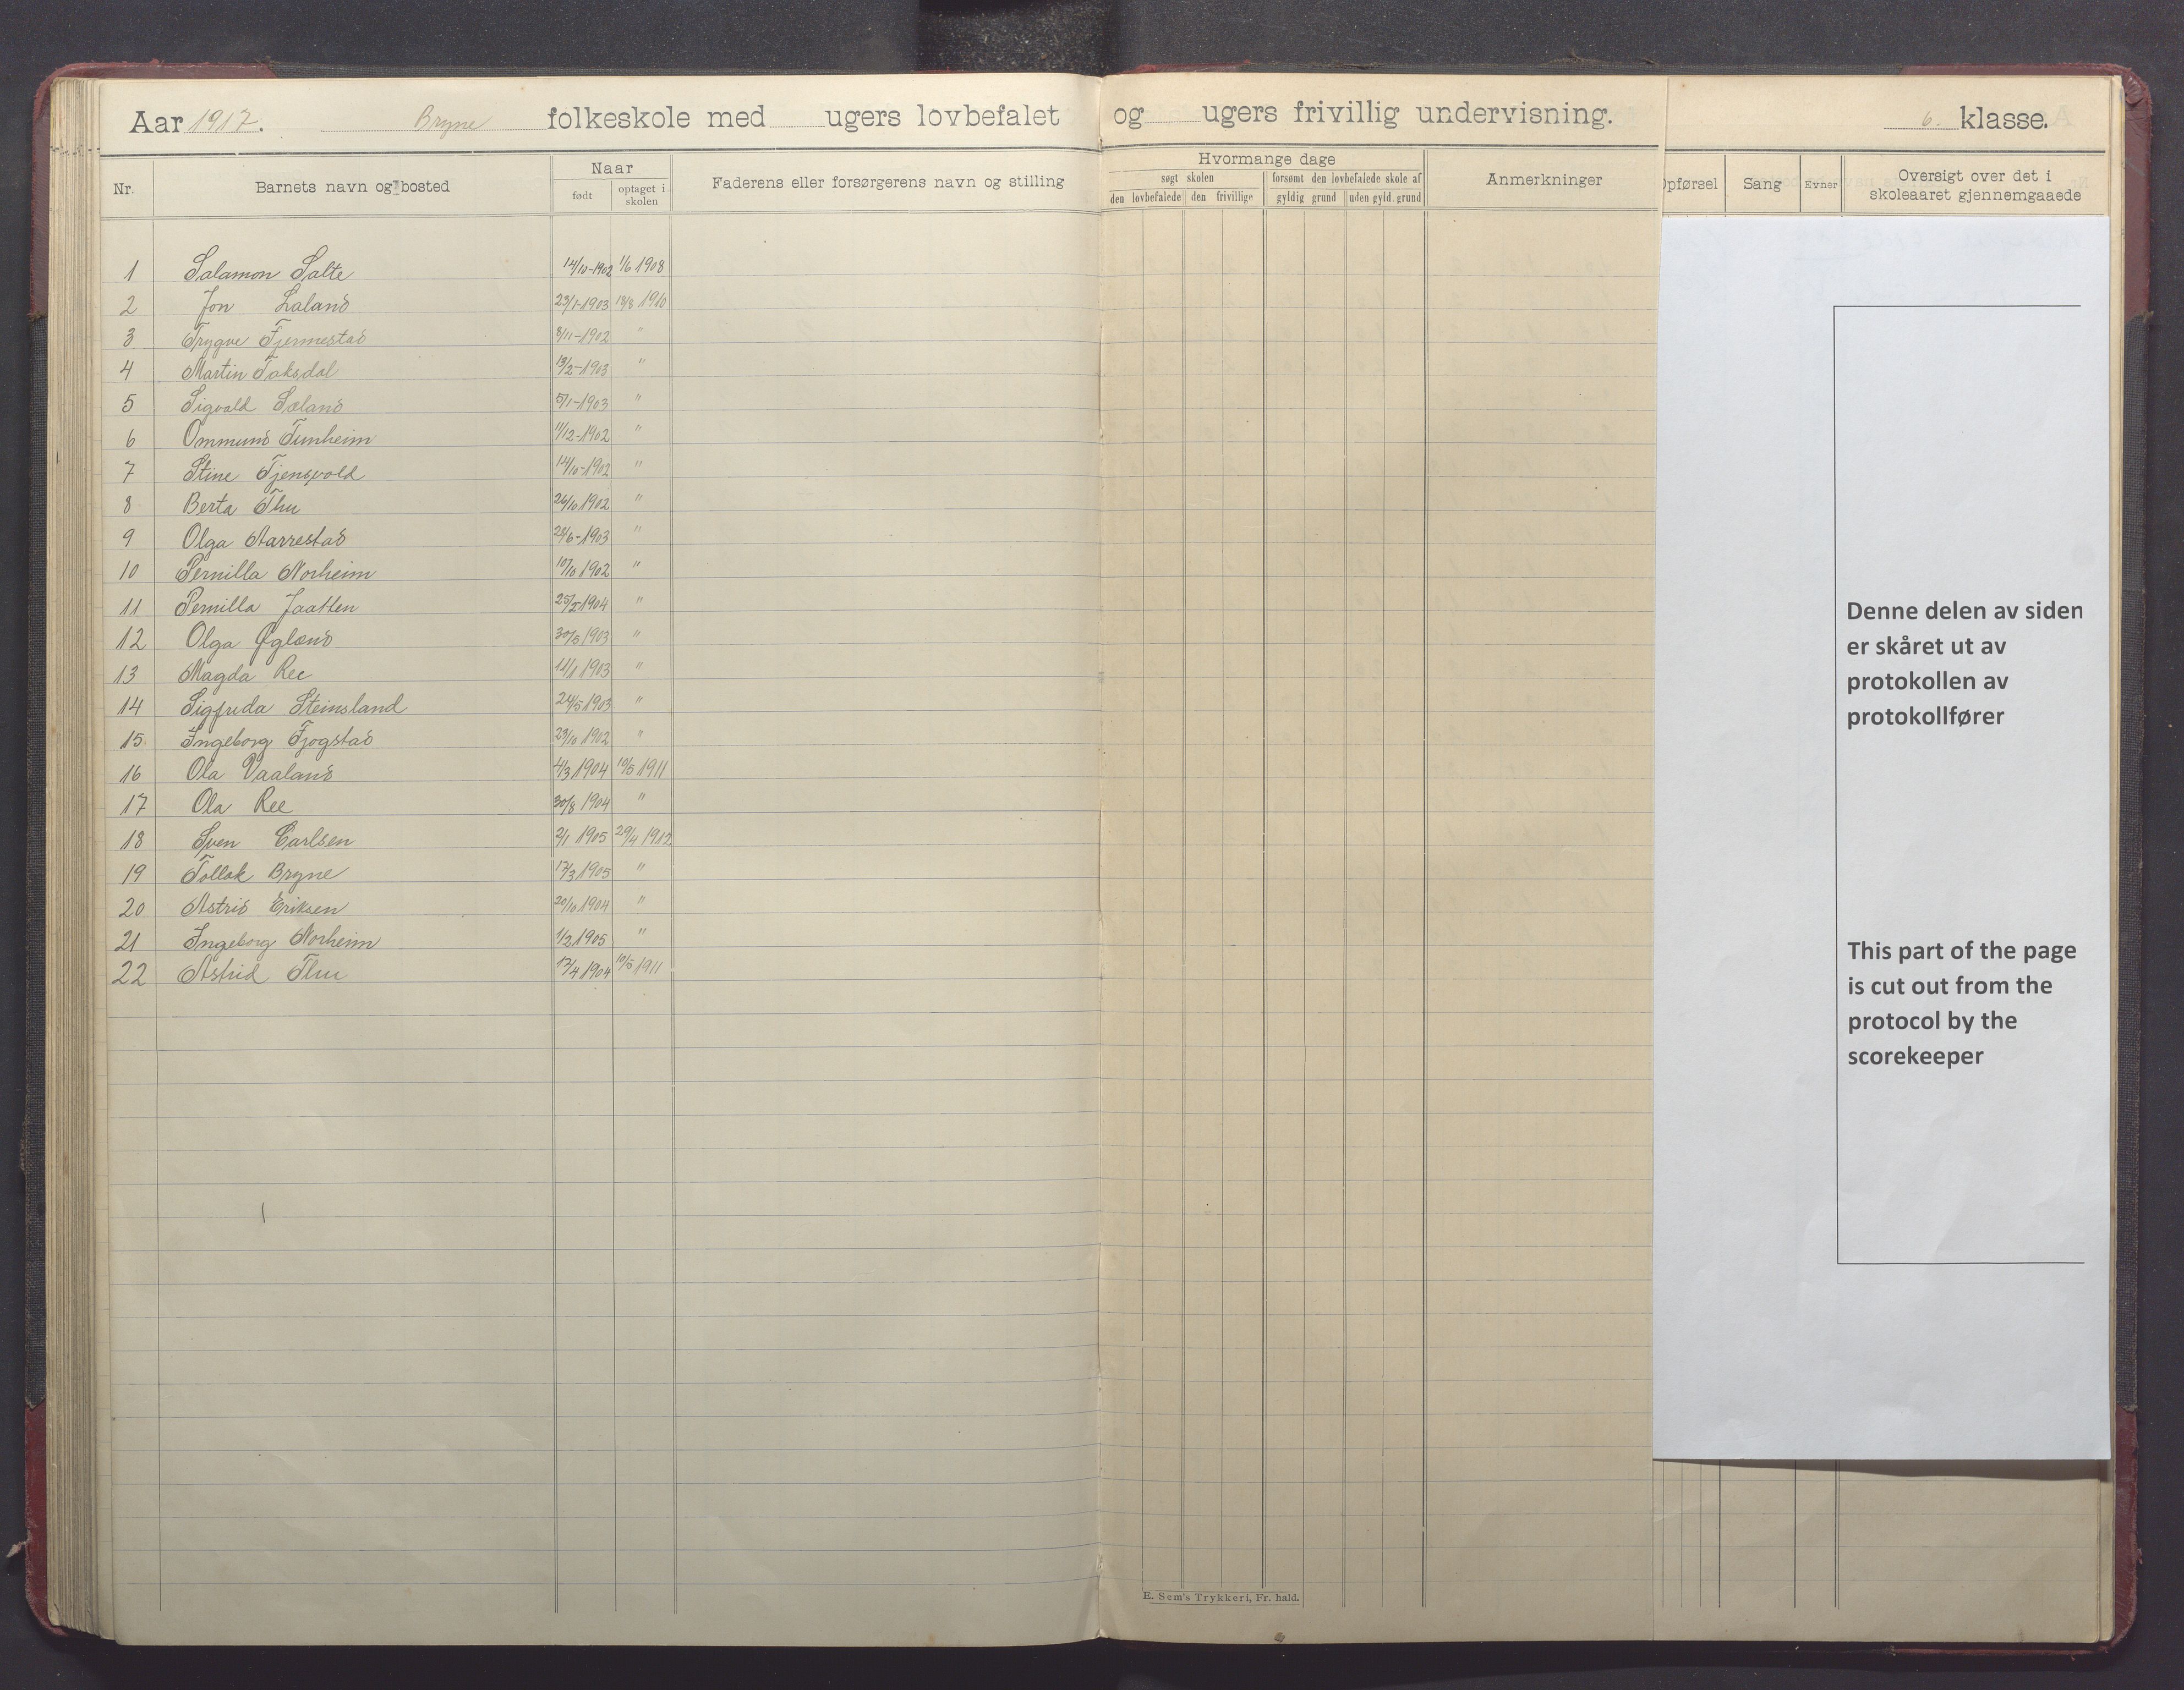 Aar 1917. Bryne folkeskole med ugers lovbefalet og ugers frivillig undervisning. 6. klasse.
Nr. Barnets navn og bosted Naar Faderens eller forsørgerens navn og stilling Hvormange dage Anmerkninger Opførsel Sang Evner Oversigt over det i skoleaaret gjennemgaaede
født optaget i skolen søgt skolen forsømt den lovbefalede skole af
den lovbefalede den frivillige gyldig grund uden gyld. grund
1 Salamon Salte 14/10-1902 1/6 1908
2 Jon Laland 23/1-1903 18/8 1910
3 Trygve Fjermestad 8/11-1902 "
4 Martin Taksdal 13/2-1903 "
5 Sigvald Sæland 5/1-1903 "
6 Ommund Tunheim 11/12-1902 "
7 Stine Tjensvold 14/10-1902 "
8 Berta Thu 26/10 1902 "
9 Olga Aarrestad 28/6-1903 "
10 Pernilla Norheim 10/10 1902 "
11 Pernilla Jaatten 25/2 1904 "
12 Olga Øglænd 30/5 1903 "
13 Magda Ree 11/1 1903 "
14 Sigfreda Steinsland 24/5 1903 "
15 Ingeborg Fjogstad 23/10 1902 "
16 Ola Vaaland 4/3 1904 10/5 1911
17 Ola Ree 30/8 1904 "
18 Sven Carlsen 2/1 1905 29/4 1912
19 Tollak Bryne 17/3 1905 "
20 Astrid Eriksen 20/10 1904 "
21 Ingeborg Norheim 1/2 1905 "
22 Astrid Thu 17/4 1904 10/5 1911
E. Sem's Trykkeri, Fr. hald.
Denne delen av siden
er skåret ut av
protokollen av
protokollfører
This part of the page
is cut out from the
protocol by the
scorekeeper